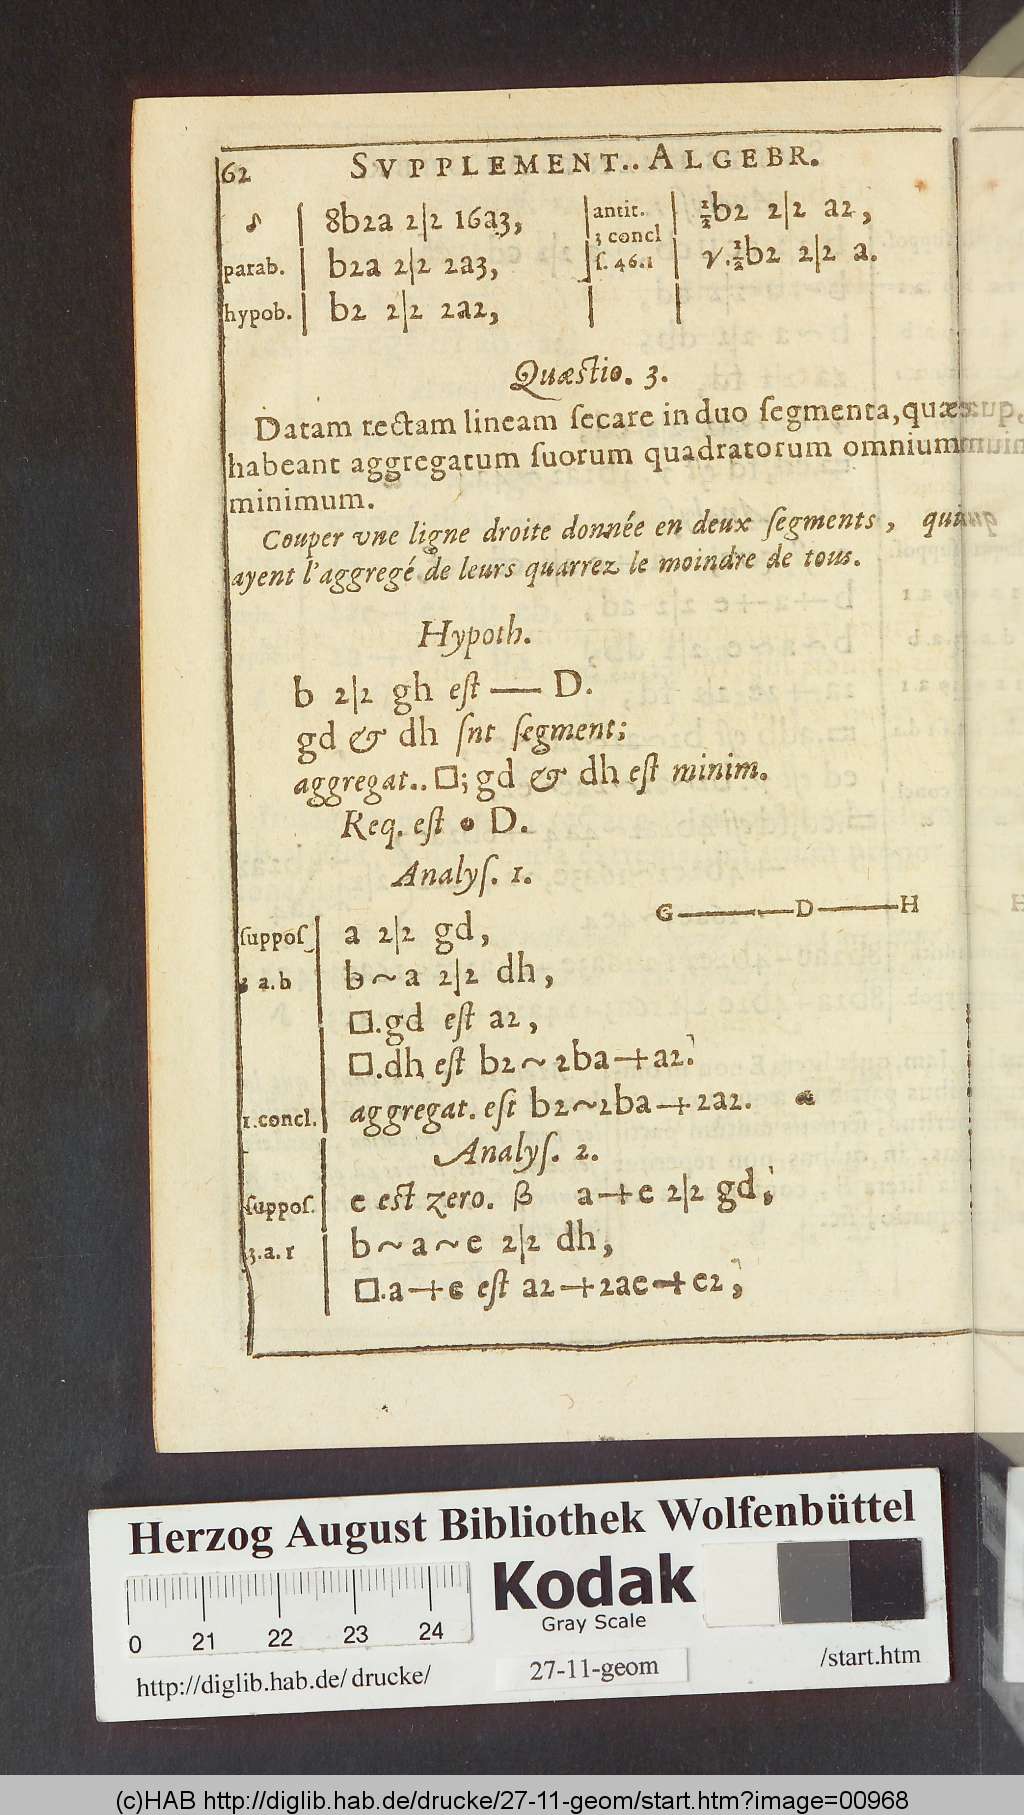 62 SVPPLEMENT.. ALGEBR.
♪ | 8b2a 2|2 16a3, | antit. | ½b2 2|2 a2,
parab. | b2a 2|2 2a3, | 3 concl ſ. 46.1 | √.½b2 2|2 a.
hypob. | b2 2|2 2a2, | |
Quæſtio. 3.
Datam rectam lineam ſecare in duo ſegmenta, quæ
habeant aggregatum ſuorum quadratorum omnium
minimum.
Couper vne ligne droite donnée en deux ſegments, qui
ayent l'aggregé de leurs quarrez le moindre de tous.
Hypoth.
b 2|2 gh eſt — D.
gd & dh ſnt ſegment;
aggregat.. □; gd & dh eſt minim.
Req. eſt • D.
Analyſ. 1.
G——D——H
ſuppoſ | a 2|2 gd,
a.b | b~a 2|2 dh,
□.gd eſt a2,
□.dh eſt b2~2ba+a2.
1.concl. | aggregat. eſt b2~2ba+2a2. α
Analyſ. 2.
ſuppoſ. | e eſt zero. β a+e 2|2 gd,
3.a.1 | b~a~e 2|2 dh,
□.a+e eſt a2+2ae+e2,
Herzog August Bibliothek Wolfenbüttel
Kodak
Gray Scale
0 21 22 23 24
http://diglib.hab.de/drucke/ 27-11-geom /start.htm
(c)HAB http://diglib.hab.de/drucke/27-11-geom/start.htm?image=00968